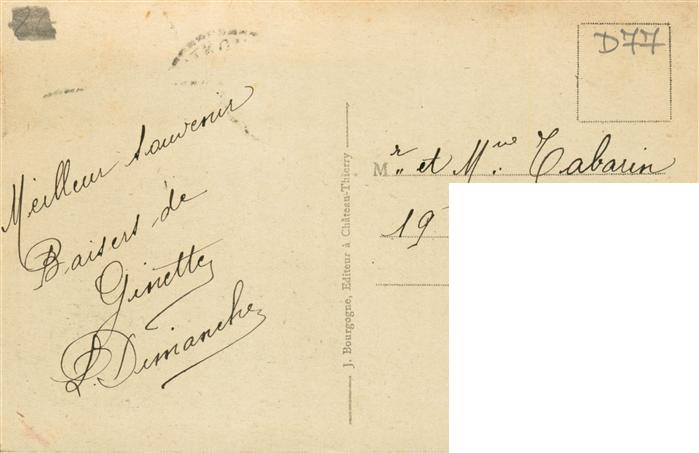 D77
Meilleur souvenir
Baisers de
Ginette
L. Dimanche
J. Bourgogne, Editeur à Château-Thierry
Mr et Mme Tabarin
19